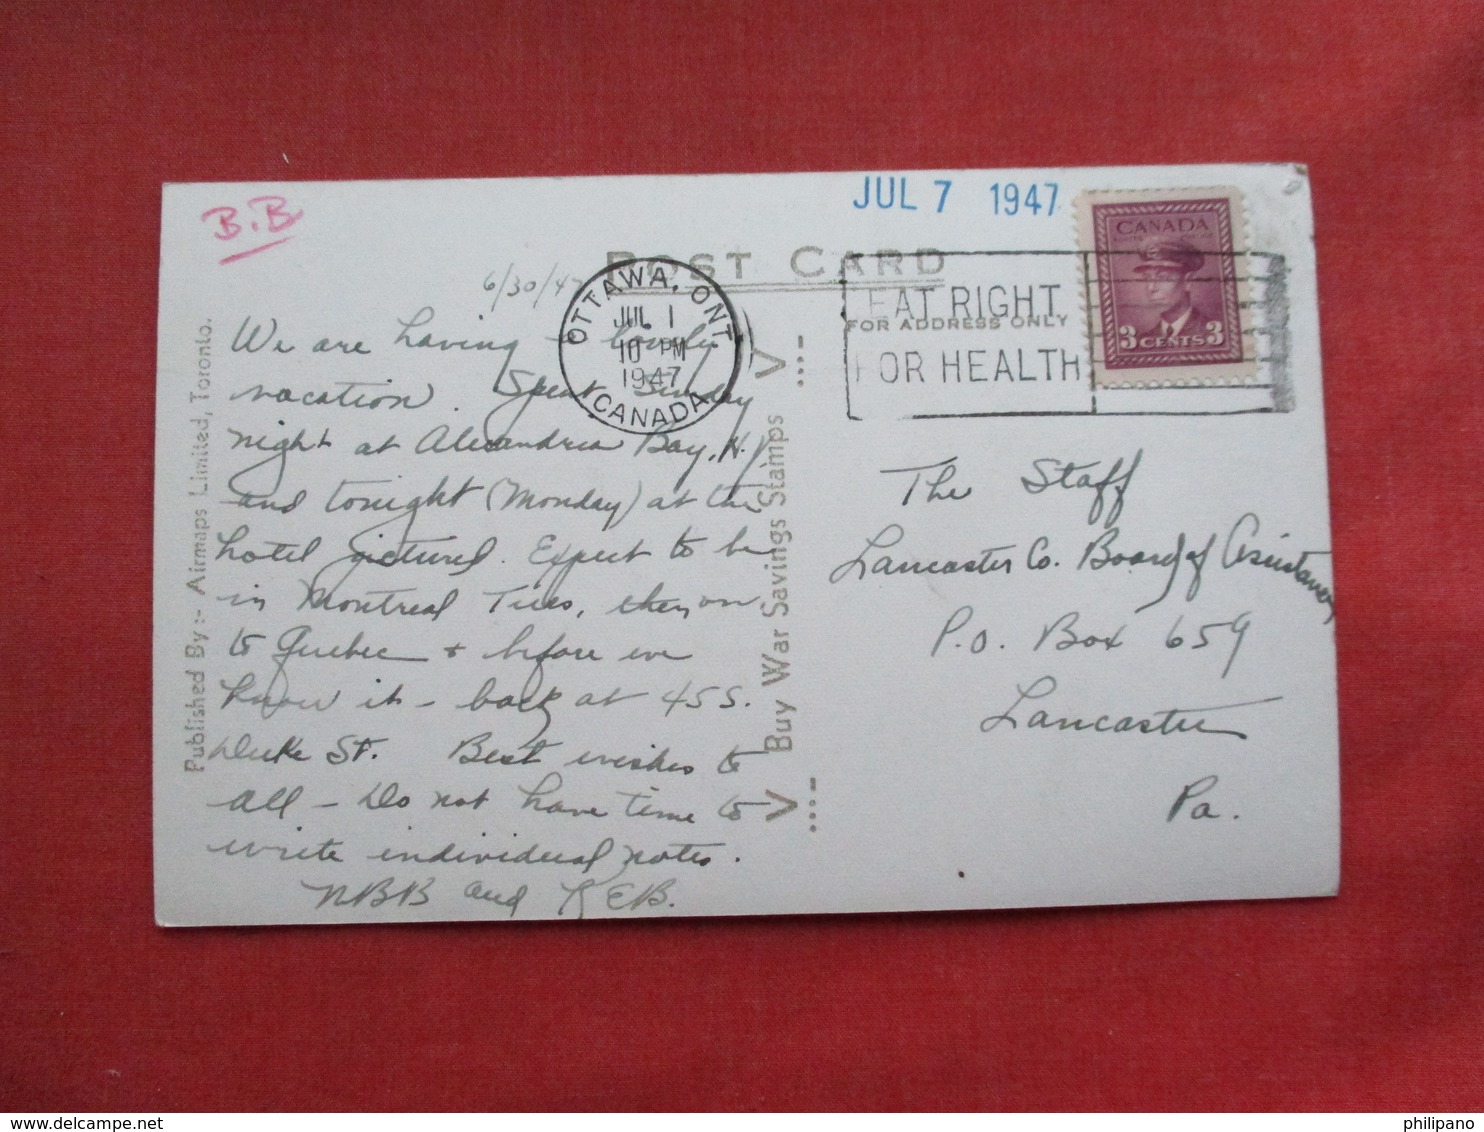 B.B
JUL 7 1947
POST CARD
6/30/47
OTTAWA, ONT
JUL 1
10 PM
1947
CANADA
EAT RIGHT
FOR ADDRESS ONLY
FOR HEALTH
CANADA
3 CENTS 3
We are having a lovely
vacation. Spent Sunday
night at Alexandria Bay, N.Y
and tonight (Monday) at the
hotel pictured. Expect to be
in Montreal Tues, then on
to Quebec + before we
know it - back at 45 S.
Duke St. Best wishes to
all - Do not have time to
write individual notes.
NBB and REB.
Published By :- Airmaps Limited, Toronto.
V ...- Buy War Savings Stamps V ...-
The Staff
Lancaster Co. Board of Assistance
P.O. Box 659
Lancaster
Pa.
www.delcampe.net
philipano